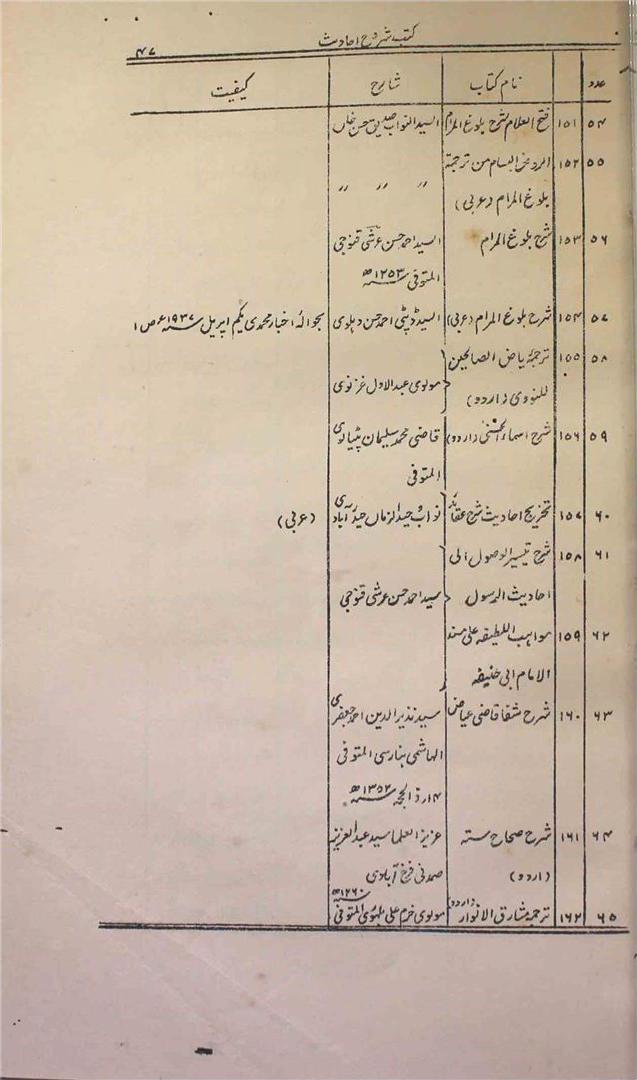 ۴۷ کتب شروح احادیث
عدد نام کتاب شارح کیفیت
۵۴ ۱۵۱ فتح العلام شرح بلوغ المرام السید النواب صدیق حسن خاں
۵۵ ۱۵۲ الروض البسام من ترجمۃ
بلوغ المرام (عربی) ” ” ”
۵۶ ۱۵۳ شرح بلوغ المرام السید احمد حسن عرشی قنوجی
المتوفی ۱۲۵۳ھ
۵۷ ۱۵۴ شرح بلوغ المرام (عربی) السید ڈپٹی احمد حسن دہلوی بحوالۂ اخبار محمدی یکم اپریل ۱۹۳۷ء ص۱
۵۸ ۱۵۵ ترجمہ ریاض الصالحین
للنووی (اردو) مولوی عبدالاول غزنوی
۵۹ ۱۵۶ شرح اسماء الحسنیٰ (اردو) قاضی محمد سلیمان پٹیالوی
المتوفی
۶۰ ۱۵۷ تخریج احادیث شرح عقائد نواب وحید الزماں حیدرآبادی (عربی)
۶۱ ۱۵۸ شرح تیسیر الوصول الی
احادیث الرسول سید احمد حسن عرشی قنوجی
۶۲ ۱۵۹ مواہب اللطیفہ علی مسند
الامام ابی حنیفہ
۶۳ ۱۶۰ شرح شفا قاضی عیاض سید نذیر الدین احمد جعفری
الہاشمی بنارسی المتوفی
۴؍ ذی الحجہ ۱۳۵۲ھ
۶۴ ۱۶۱ شرح صحاح ستہ عزیز العلما سید عبدالعزیز
(اردو) صمدنی فرخ آبادی
۶۵ ۱۶۲ ترجمہ مشارق الانوار (اردو) مولوی خرم علی بلہوری المتوفی ۱۲۶۰ھ